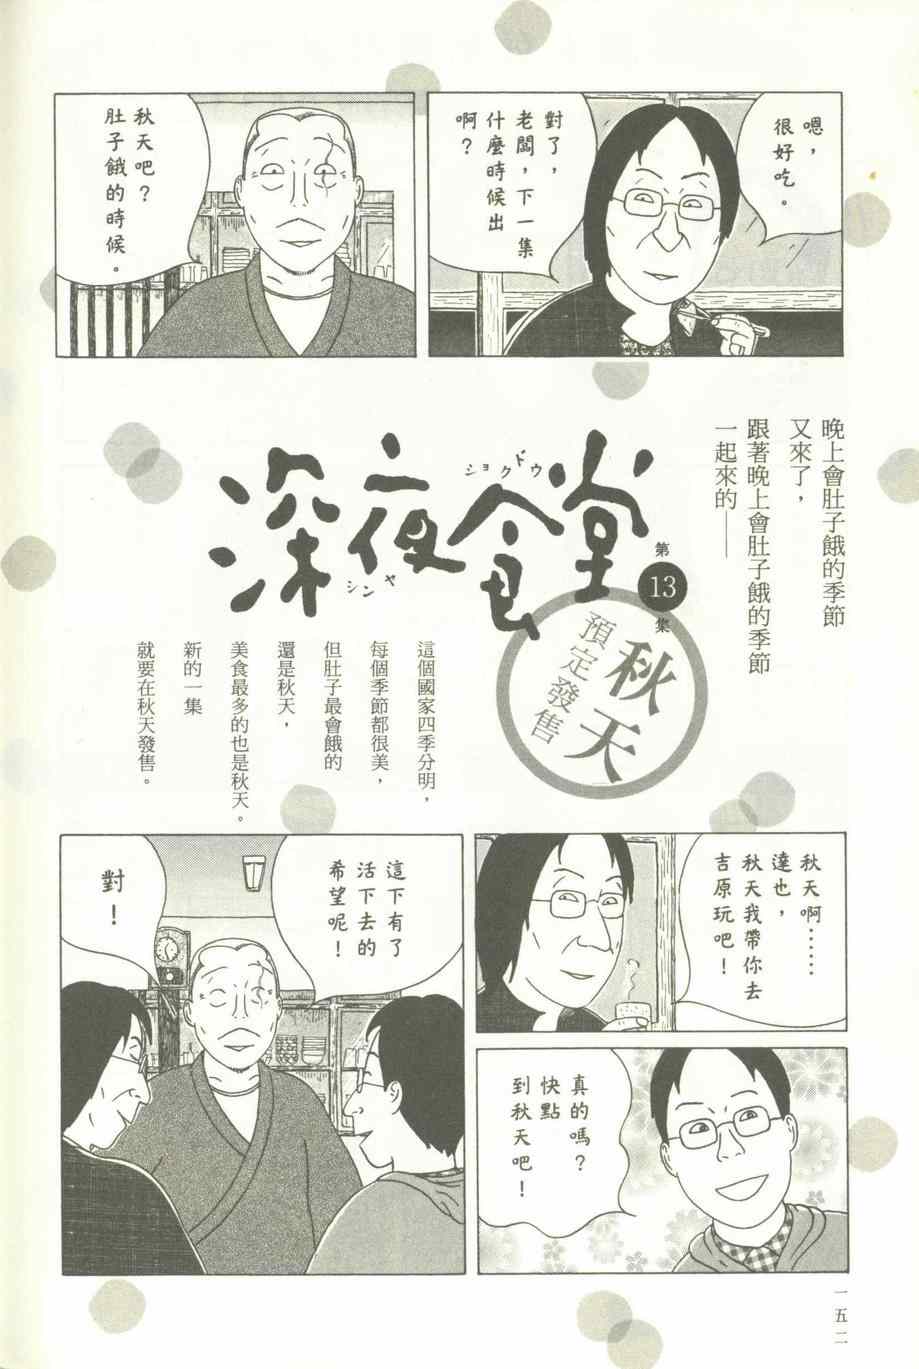 嗯，
很好吃。
對了，
老闆，下一集
什麼時候出
啊？
秋天吧？
肚子餓的時候。
晚上會肚子餓的季節
又來了，
跟著晚上會肚子餓的季節
一起來的——
深夜食堂
シンヤ
ショクドウ
第
13
集
秋天
預定發售
這個國家四季分明，
每個季節都很美，
但肚子最會餓的
還是秋天，
美食最多的也是秋天。
新的一集
就要在秋天發售。
秋天啊……
達也，
秋天我帶你去
吉原玩吧！
真的嗎？
快點
到秋天吧！
這下有了
活下去的
希望呢！
對！
一五二